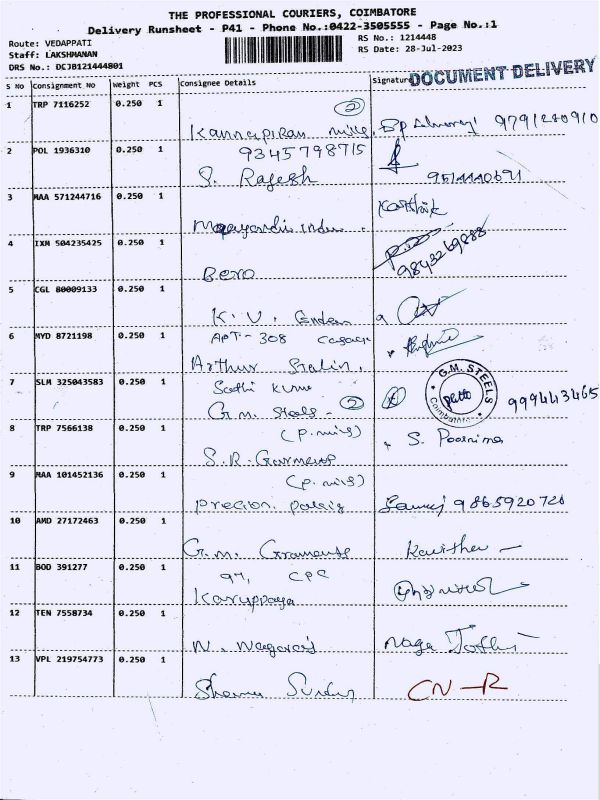 THE PROFESSIONAL COURIERS, COIMBATORE
Delivery Runsheet - P41 - Phone No.:0422-3505555 - Page No.:1
Route: VEDAPPATI
RS No.: 1214448
Staff: LAKSHMANAN
RS Date: 28-Jul-2023
DRS No.: DCJB121444801
DOCUMENT DELIVERY
S No Consignment No Weight PCS Consignee Details Signature
1 TRP 7116252 0.250 1
2
Kannapiran mills.
2 POL 1936310 0.250 1 9345798715
S. Rajesh
3 MAA 571244716 0.250 1 Karthik
4 IXM 504235425 0.250 1 9843269888
Bero
5 CGL 80009133 0.250 1
K. V.
6 MYD 8721198 0.250 1 APT - 308
Arthur Stalin,
7 SLM 325043583 0.250 1 Sathi Kumar
G.M. STEELS
Coimbatore
999443465
G.m. Steels - 2
8 TRP 7566138 0.250 1 (P. mill) S. Poornima
S.R. Garments
9 MAA 101452136 0.250 1 (P. mill)
Precion 9865920720
10 AMD 27172463 0.250 1
G.m. Kavitha
11 BOD 391277 0.250 1 97, CPC
Karuppaya
12 TEN 7558734 0.250 1
N. Nagaraj Naga Jothi
13 VPL 219754773 0.250 1
CN-R